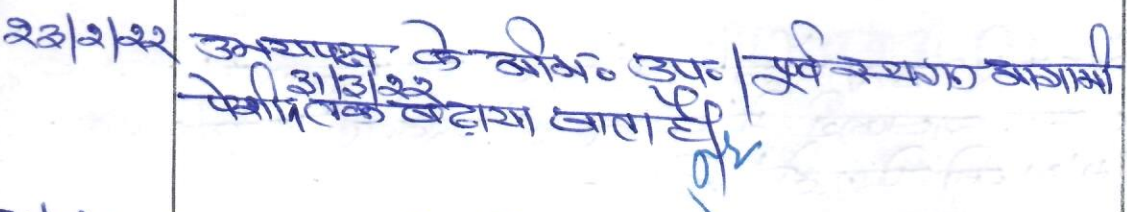 २३/२/२२ उभयपक्ष के अभि० उप० / पूर्व स्थगन आगामी
३१/३/२२
पेशी तक बढ़ाया जाता है